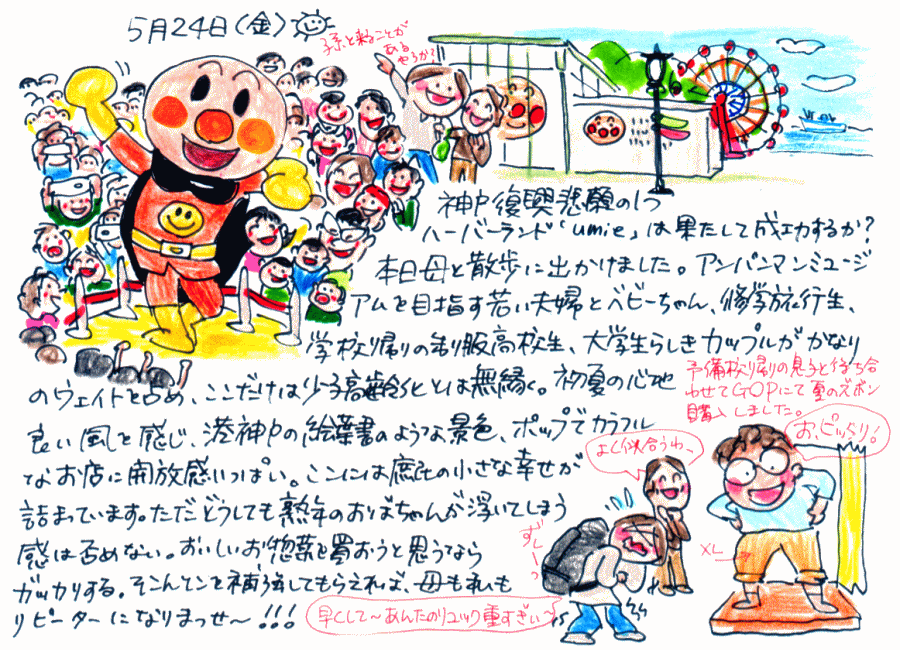 5月24日(金)
子孫と来ることが
ある
やろか?
神戸復興悲願の1つ
ハーバーランド「umie」は果たして成功するか?
本日母と散歩に出かけました。アンパンマンミュージ
アムを目指す若い夫婦とベビーちゃん、修学旅行生、
学校帰りの制服高校生、大学生らしきカップルがかなり
のウェイトを占め、ここだけは少子高齢化とは無縁。初夏の心地
良い風を感じ、港神戸の絵葉書のような景色、ポップでカラフル
なお店に開放感いっぱい。ここには庶民の小さな幸せが
詰まっています。ただどうしても熟年のおばちゃんが浮いてしまう
感は否めない。おいしいお惣菜を買おうと思うなら
ガッカリする。そこんとこを補強してもらえれば、母も私も
リピーターになりまっせ〜!!!
予備校帰りの息子と待ち合
わせてGOPにて夏のズボン
購入しました。
お、ピッタリ!
よく似合うわ〜
XL
ずしーっ
早くして〜あんたのリュック重すぎぃ〜